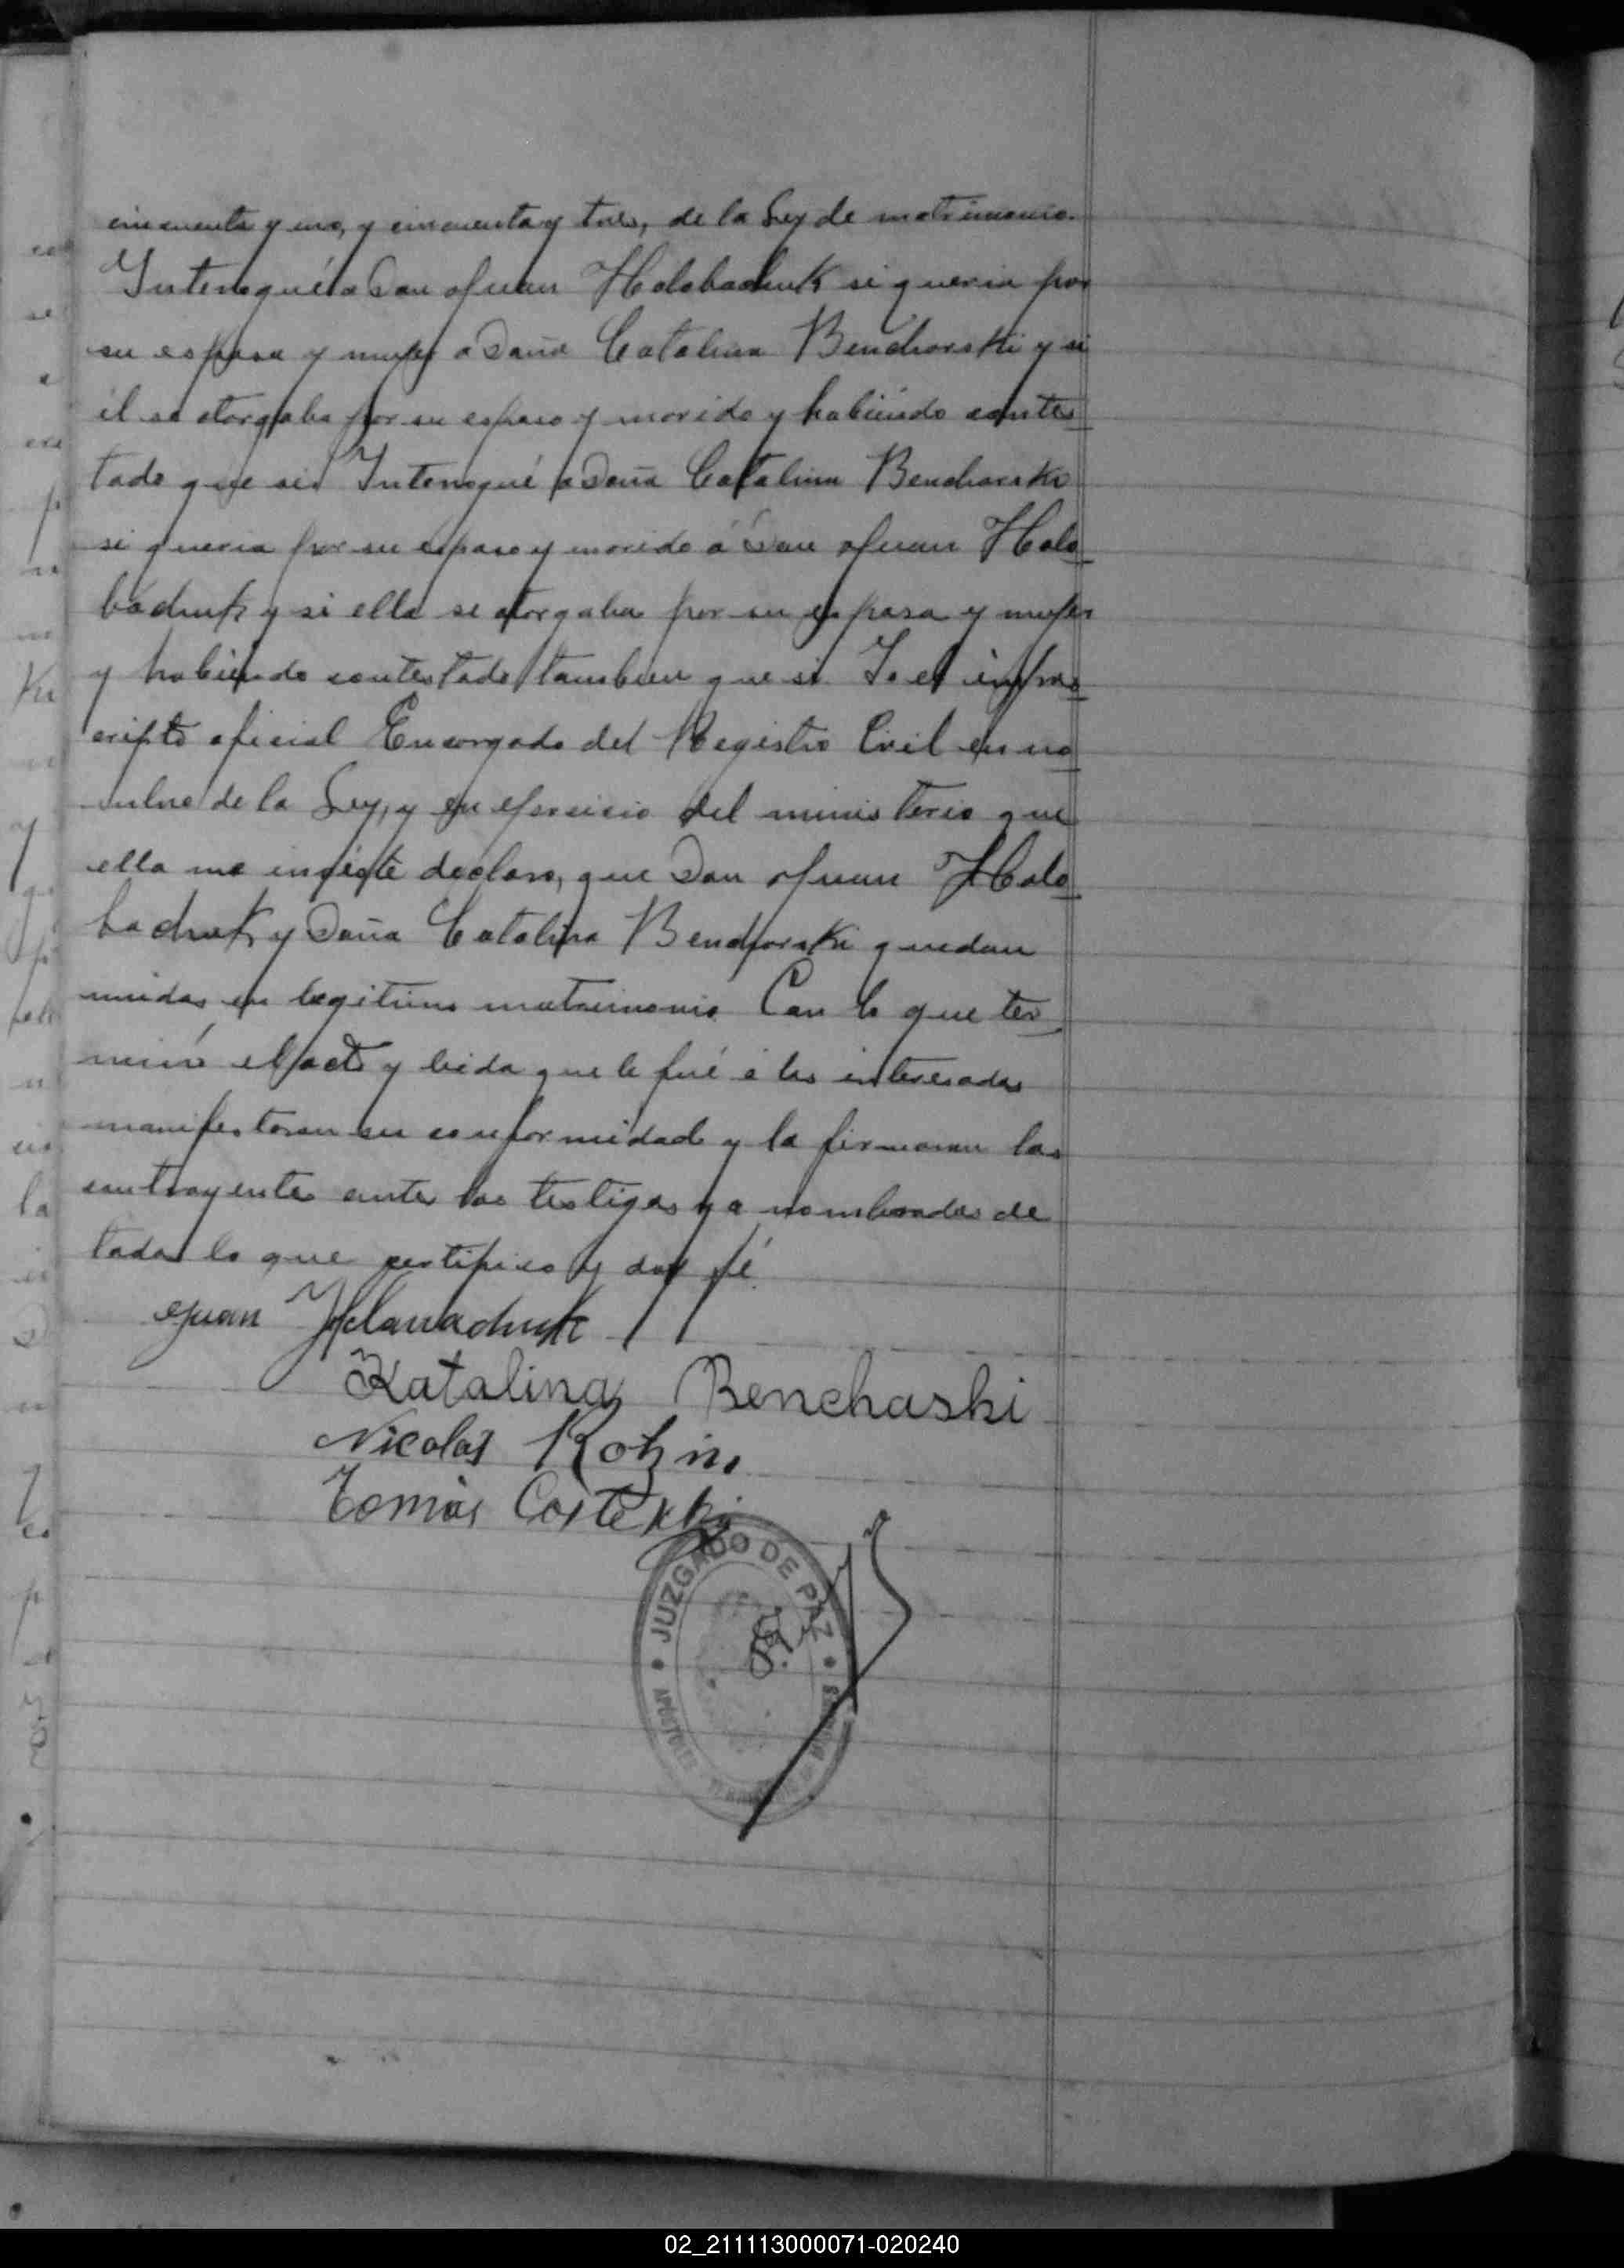 cincuenta y uno, y cincuenta y tres, de la Ley de matrimonio.
Interrogué a Don Juan Holobachuk si queria por
su esposa y mujer a Doña Catalina Benchorski y si
él se otorgaba por su esposo y marido y habiendo contes
tado que si Interrogué a Doña Catalina Benchorski
si queria por su esposo y marido á Don Juan Holo
bachuk y si ella se otorgaba por su esposa y mujer
y habiendo contestado tambien que si Yo el infras
cripto oficial Encargado del Registro Civil en no
mbre de la Ley, y en ejercicio del ministerio que
ella me inviste declaro, que Don Juan Holo
bachuk y Doña Catalina Benchorski quedan
unidos en legitimo matrimonio Con lo que ter
minó el acto y leida que le fué á los interesados
manifestaron su conformidad y la firmaron los
contrayentes ante los testigos ya nombrados de
todo lo que certifico y doy fé
Juan Holowachuk
Katalina Benchaski
Nicolas
Tomás
JUZGADO DE PAZ
APOSTOLES
02_211113000071-020240